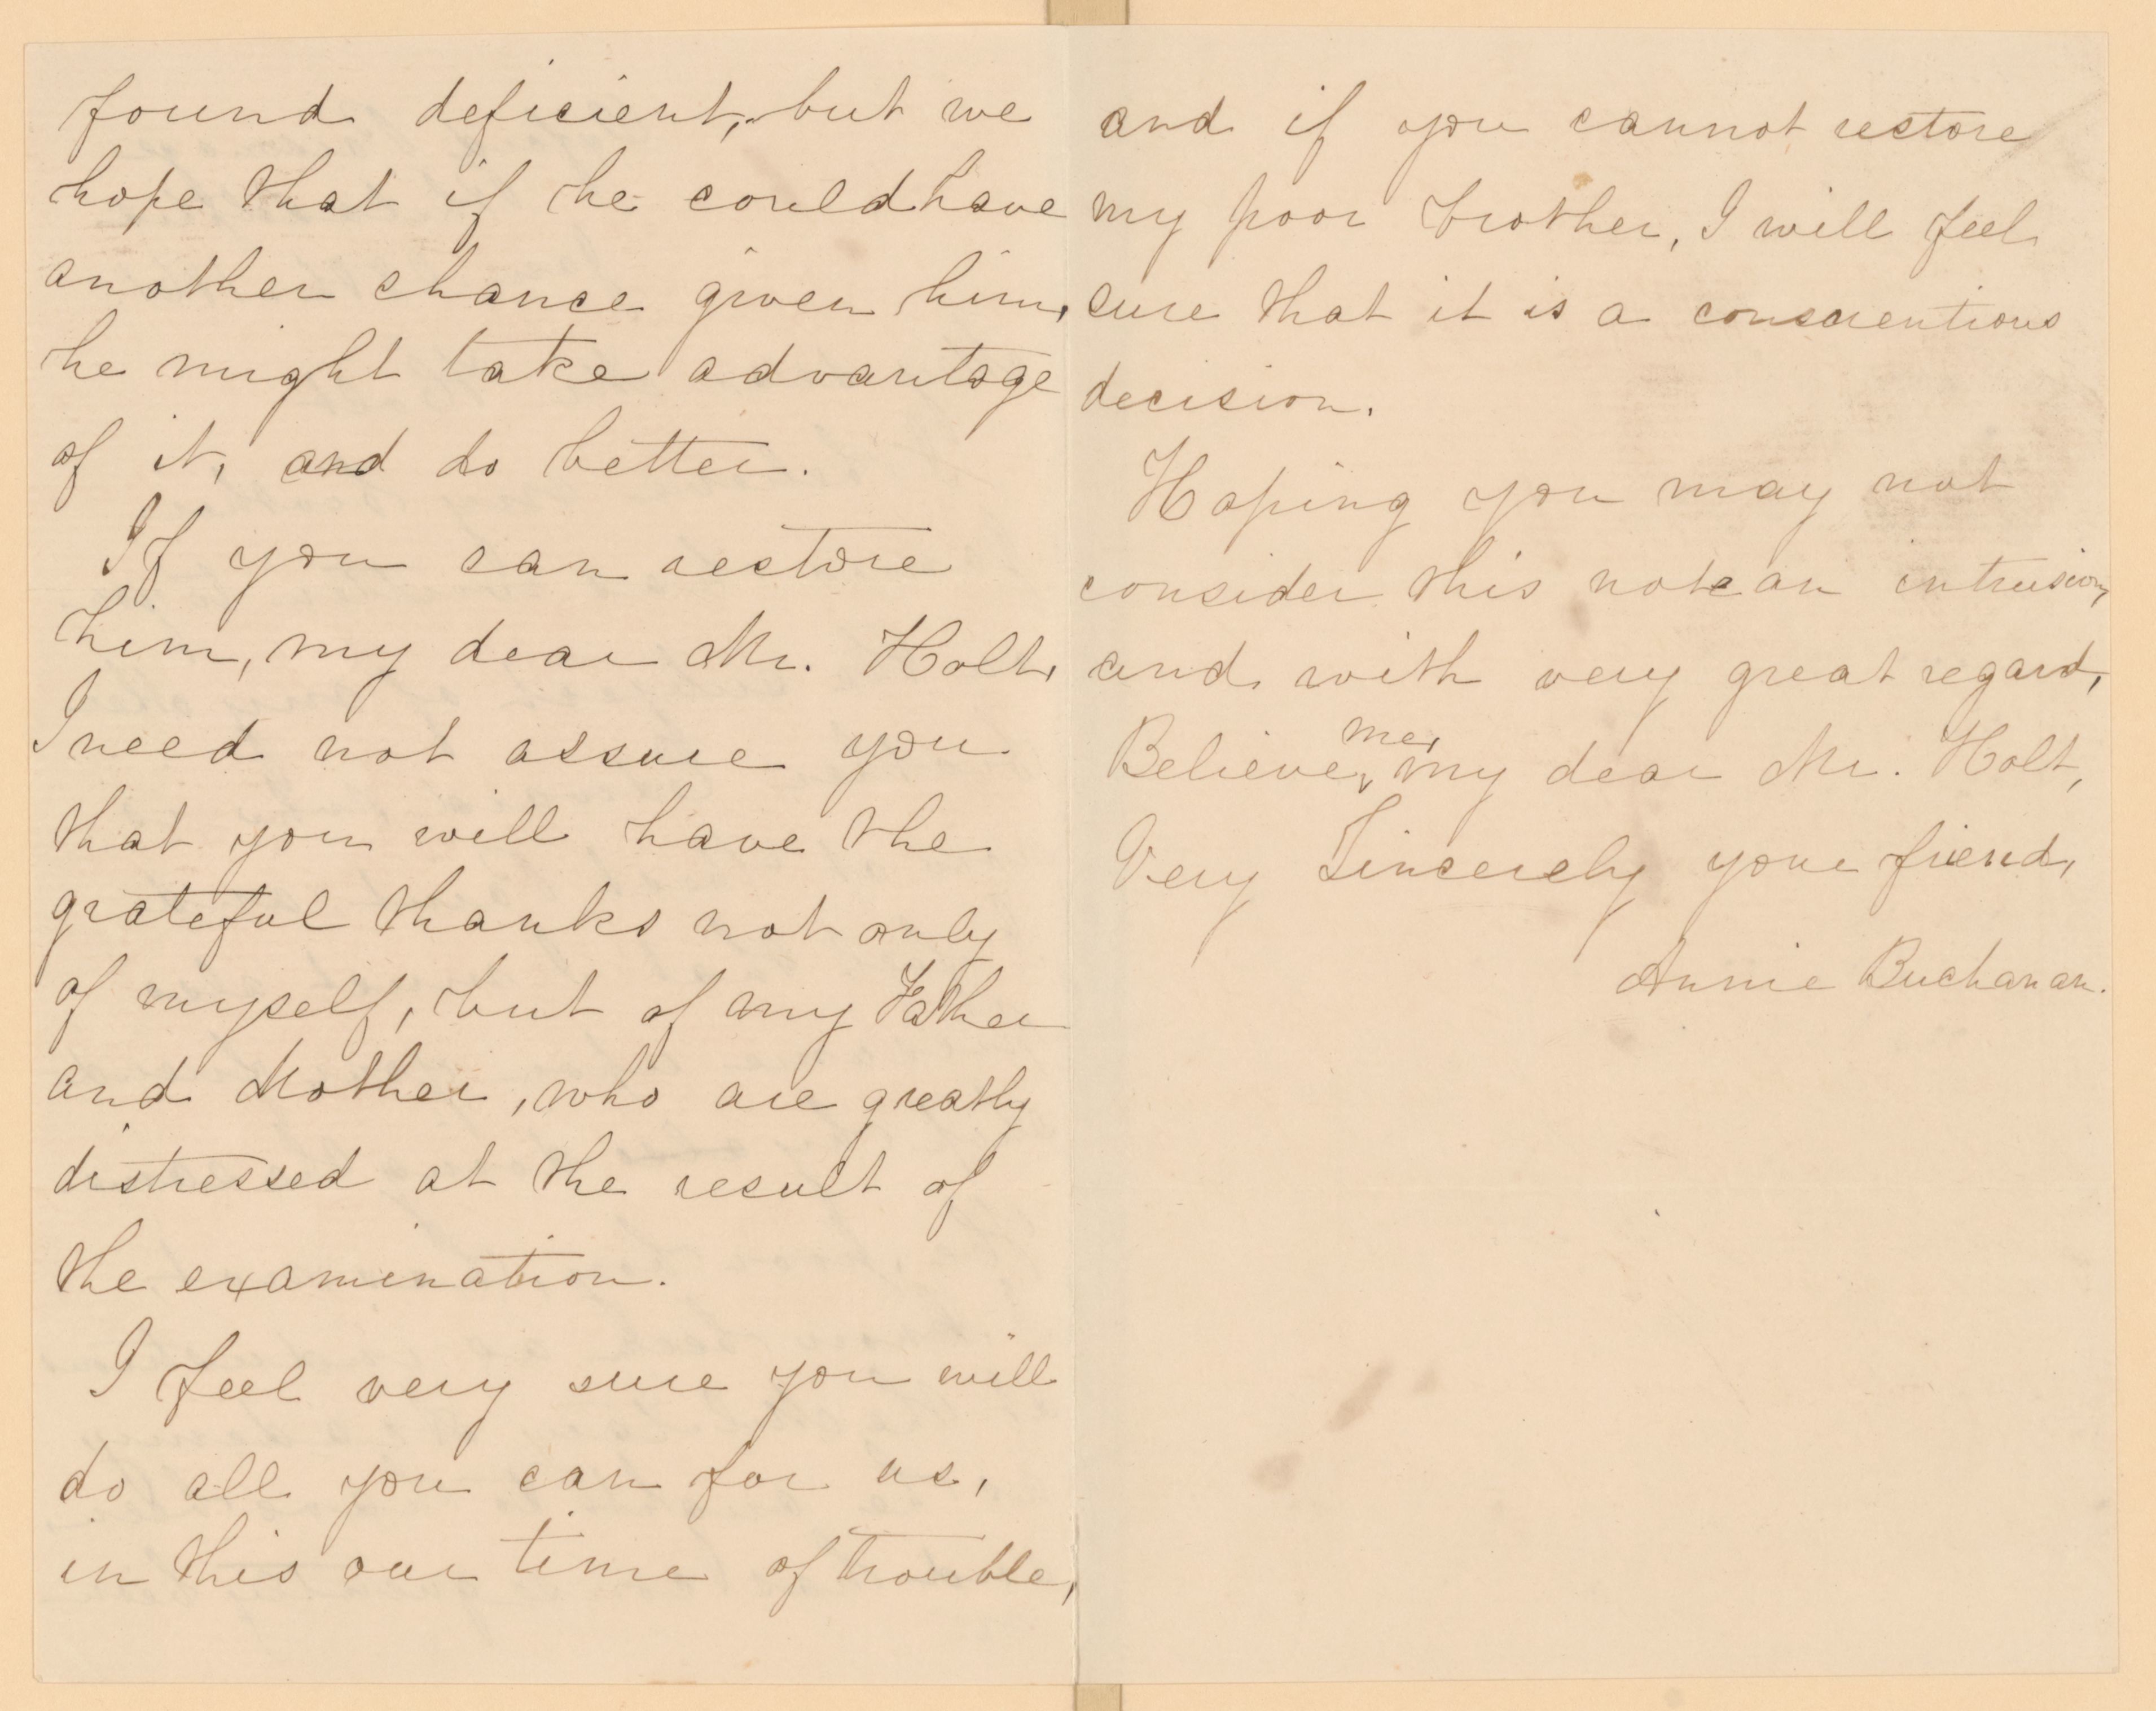 found deficient, but we
hope that if he could have
another chance given him,
he might take advantage
of it, and do better.
If you can restore
him, my dear Mr. Holt,
I need not assure you
that you will have the
grateful thanks not only
of myself, but of my Father
and Mother, who are greatly
distressed at the result of
the examination.
I feel very sure you will
do all you can for us,
in this our time of trouble,
and if you cannot restore
my poor brother, I will feel
sure that it is a conscientious
decision.
Hoping you may not
consider this note an intrusion,
and with very great regard,
me,
Believe, my dear Mr. Holt,
Very Sincerely your friend,
Annie Buchanan.